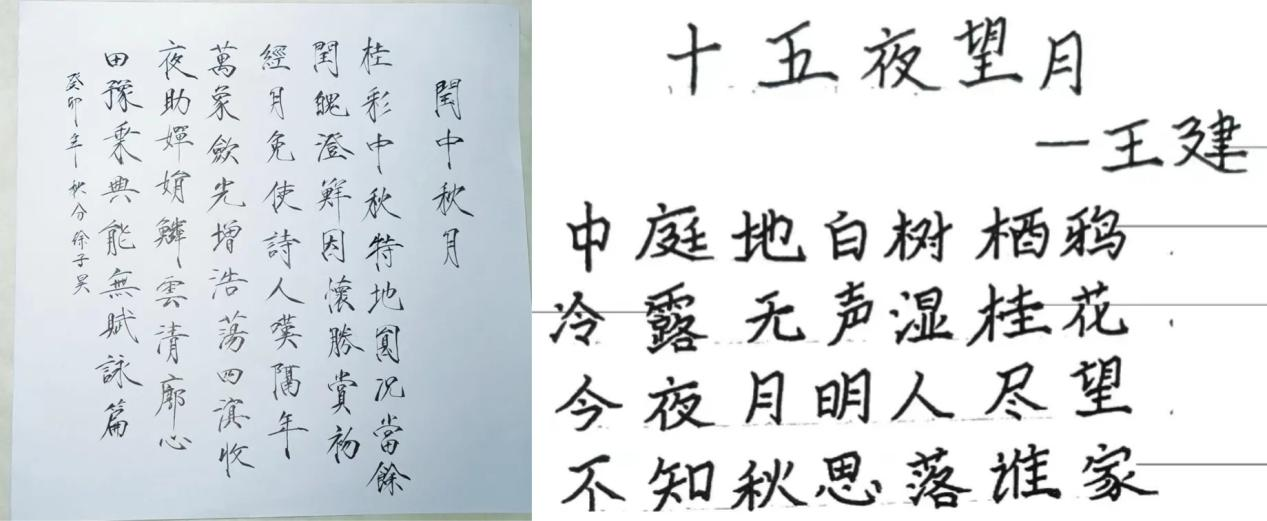 閏中秋月
桂彩中秋特地圓況當餘
閏魄澄鮮因懷勝賞初
經月免使詩人嘆隔年
萬象歛光增浩蕩四溟收
夜助嬋娟鱗雲清廓心
田豫乘興能無賦詠篇
癸卯年秋分徐子昊
十五夜望月
一王建
中庭地白树栖鸦
冷露无声湿桂花
今夜月明人尽望
不知秋思落谁家